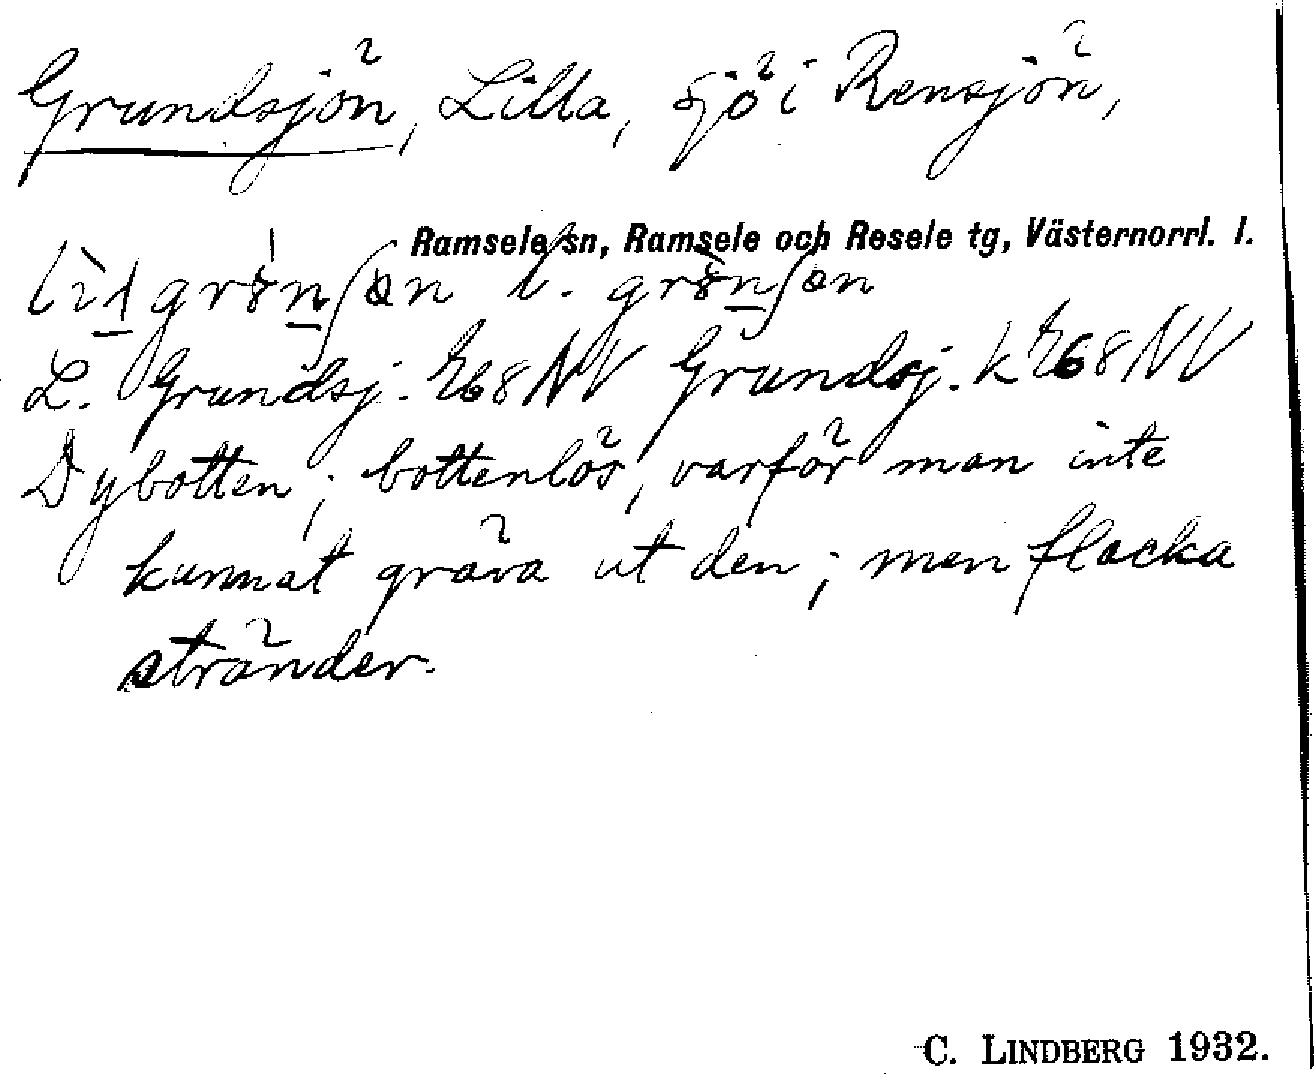 Grundsjön, Lilla, sjö i Rensjön,
Ramsele sn, Ramsele och Resele tg, Västernorrl. l.
L. Grundsj. 68 NV Grundsj. k 68 NV
Dybotten; bottenlös, varför man inte
kunnat gräva ut den; men flacka
stränder.
C. LINDBERG 1932.